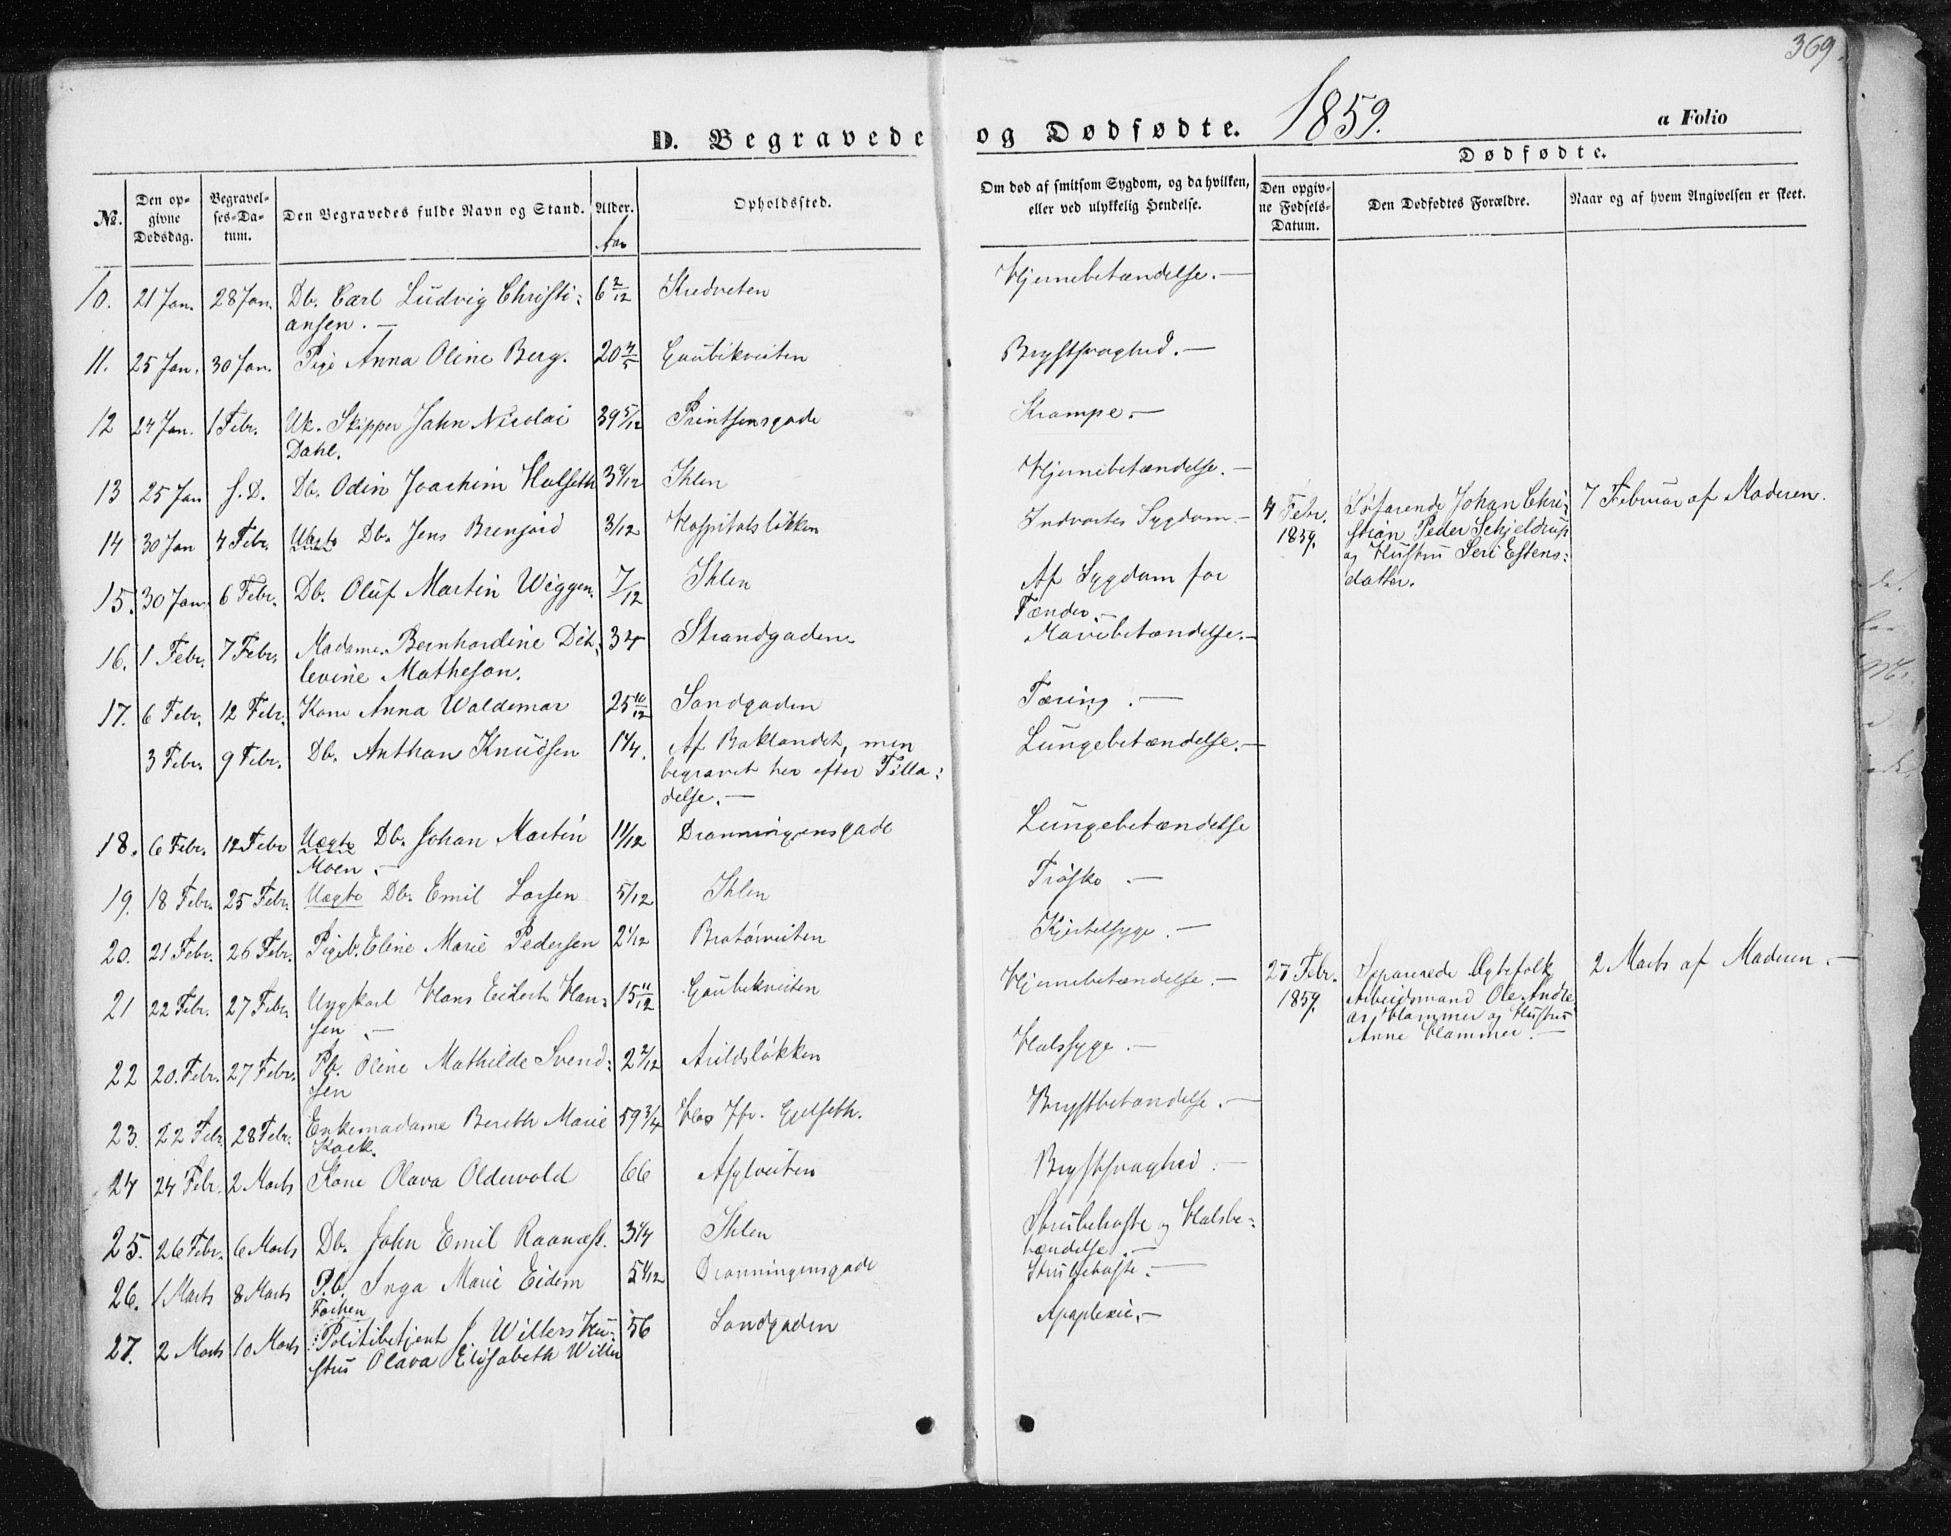 369.
D. Begravede og Dødfødte. 1859. a Folio
Dødfødte.
No. Den opgivne Dødsdag. Begravelses-Datum. Den Begravedes fulde Navn og Stand. Alder. Opholdssted. Om død af smitsom Sygdom, og da hvilken, eller ved ulykkelig Hendelse. Den opgivne Fødsels-Datum. Den Dødfødtes Forældre. Naar og af hvem Angivelsen er skeet.
Aar
10. 21 Jan. 28 Jan. Db. Carl Ludvig Christi- 6 2/12 Hjernebetændelse. —
ansen. —
11. 25 Jan. 30 Jan. Pige Anna Oline Berg. 20 Gaubikveiten Brystsvaghed. —
12 24 Jan. 1 Febr. Uk. Skipper John Nicolai 39 5/12 Printsensgade Krampe. —
Dahl.
13 25 Jan s. D. Db. Odin Joachim Halseth Ihlen Hjernebetændelse. —
14 30 Jan 4 Febr. Uægte Db. Jens Brenjord 3/12 Hospitalsløkken Indvortes Sygdom. — 4 Febr. Søfarende Johan Chri- 7 Februar af Moderen.
1859. stian Peder Schjeldrup
og Hustru Seri Estens-
datter.
15. 30 Jan. 6 Febr. Db. Oluf Martin Wiggen. 7/12 Ihlen Af Sygdom for
Tænder. —
16. 1 Febr. 7 Febr. Madame Bernhardine Dit- 34 Strandgaden Mavebetændelse. —
levine Matheson.
17. 6 Febr. 12 Febr. Kone Anna Waldemar 25 10/12 Sandgaden Tæring. —
3 Febr. 9 Febr. Db. Anthon Knudsen 1 1/4. Af Baklandet, men Lungebetændelse. —
begravet her efter Tilla-
delse. —
18. 6 Febr. 12 Febr Uægte Db. Johan Martin 11/12 Dronningensgade Lungebetændelse
Moen. —
19. 18 Febr. 25 Febr. Uægte Db. Emil Larsen 5/12 Ihlen Trøske —
20. 21 Febr. 26 Febr. Pigeb. Eline Marie Pedersen 2 1/12 Bratørveiten Kjertelsyge. —
21 22 Febr. 27 Febr. Ungkarl Hans Eidert Han- 15 11/12 Gaubekveiten Hjernebetændelse. — 27 Febr. Ægtefolk 2 Marts af Moderen. —
sen. — 1859. Arbeidsmand Ole Andre-
as Hammer og Hustru
Anne Hammer. —
22 20. Febr. 27 Febr. Pb. Oline Mathilde Svend- 2 2/12 Arildsløkken Halssyge. —
sen
23. 22 Febr 28 Febr. Enkemadame Bereth Marie 59 3/4 Hos Gjelseth. Brystbetændelse. —
Kock.
24 24 Febr. 2 Marts Kone Olava Oldervold 66 Asylveiten Brystsvaghed —
25. 26 Febr. 6 Marts Db. John Emil Raanæs. 3 1/4 Ihlen Strubehoste og Halsbe-
tændelse. —
26. 1 Marts 8 Marts P.b. Inga Marie Eidem 5 Dronningensgade Strubehoste. —
27. 2 Marts 10 Marts Politibetjent J. Willers Hu- 56 Sandgaden Apoplexie. —
stru Olava Elisabeth Willer